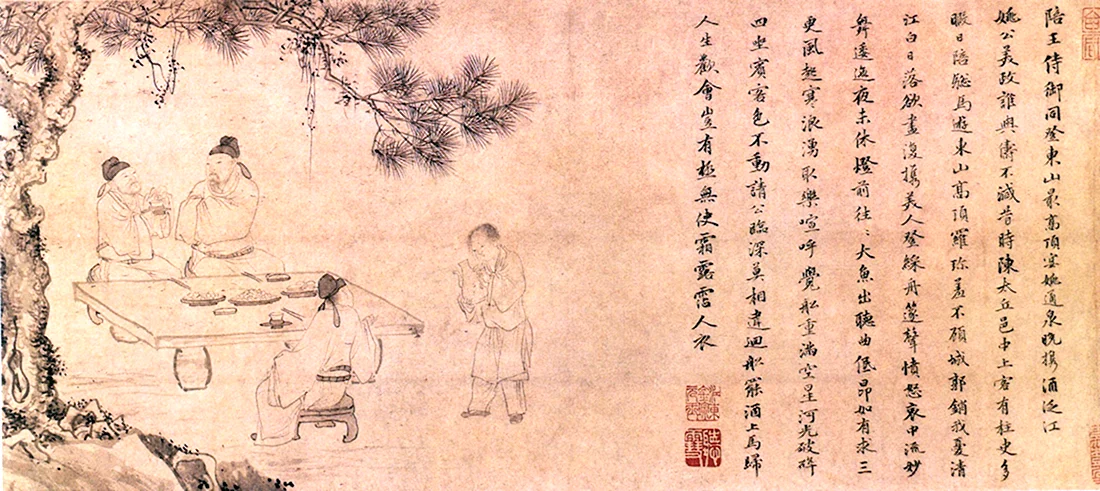 陪王侍御同登東山最高頂宴姚通泉晚携酒泛江
姚公美政誰與儔不減昔時陳太丘邑中上客有柱史多
暇日陪驄馬遊東山高頂羅珍羞不顧城郭銷我憂清
江白日落欲盡復携美人登綵舟篴聲憤怒哀中流妙
舞逶迤夜未休燈前往〻大魚出聽曲低昂如有求三
更風起寒浪湧取樂喧呼覺船重滿空星河光破碎
四坐賓客色不動請公臨深莫相違迴船罷酒上馬歸
人生歡會豈有極無使霜露霑人衣